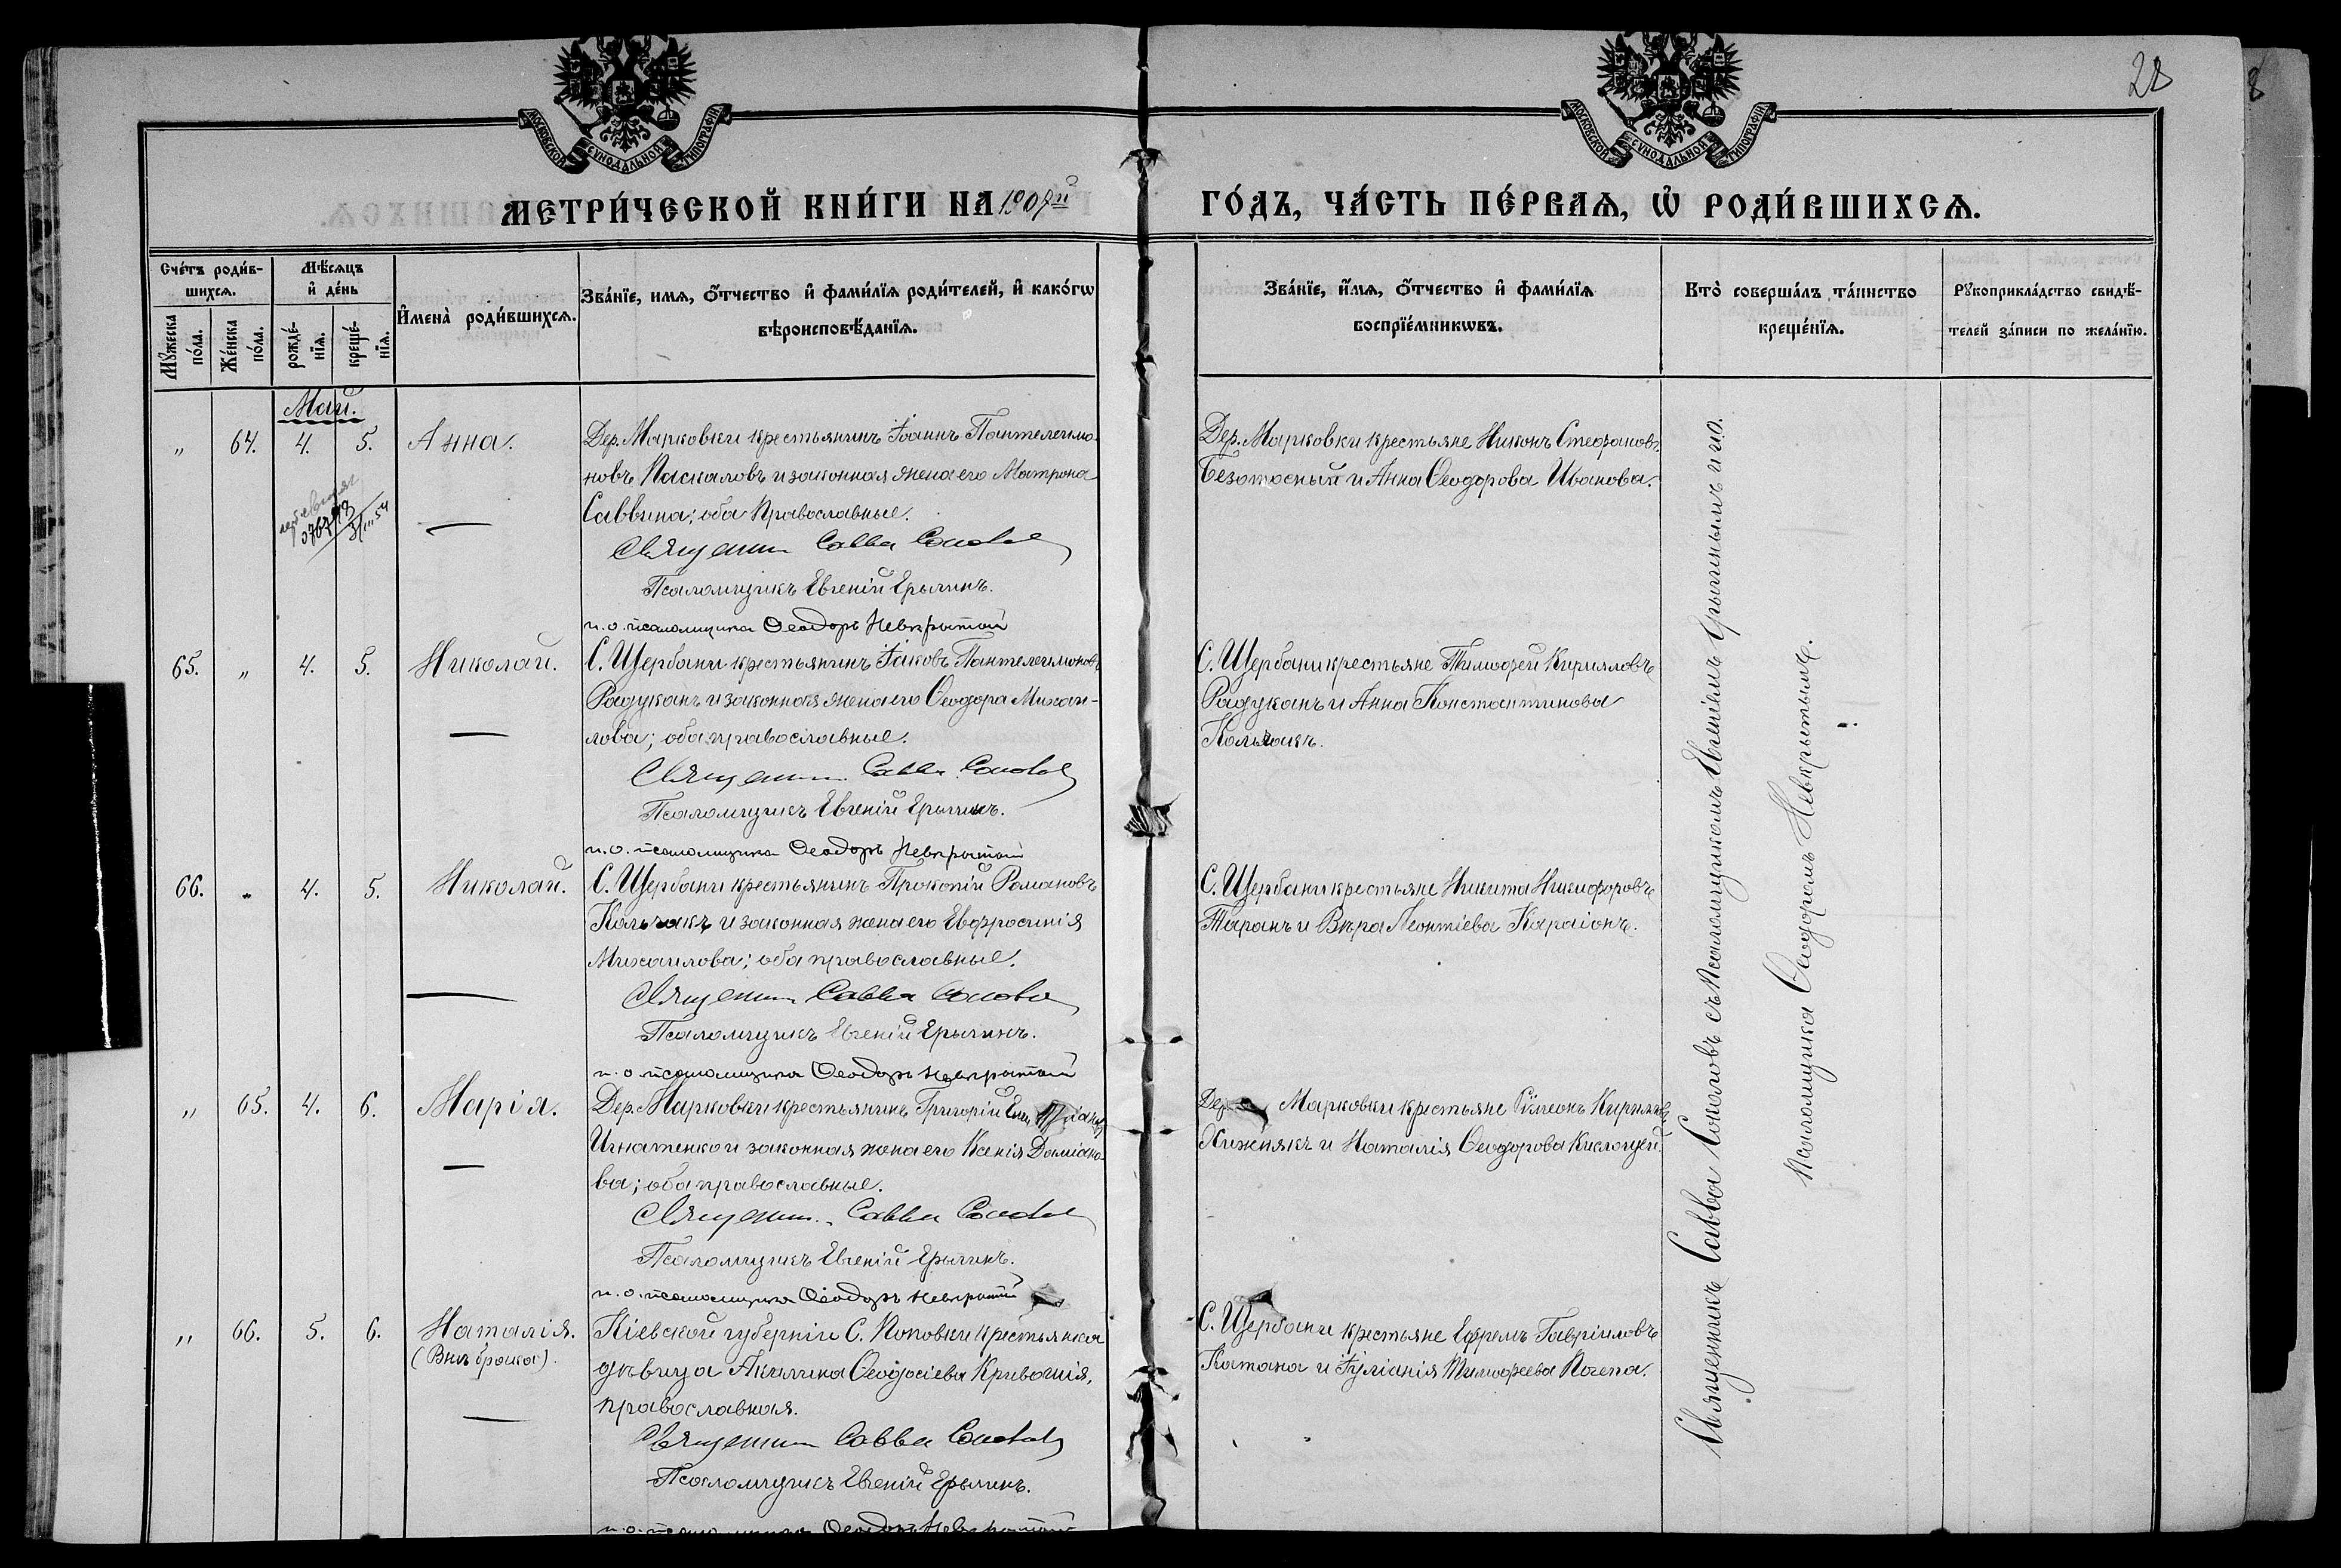 28
МОСКОВСКОЙ СѴНОДАЛЬНОЙ ТИПОГРАФІИ
МОСКОВСКОЙ СѴНОДАЛЬНОЙ ТИПОГРАФІИ
МЕТРИ́ЧЕСКОЙ КНИ́ГИ НА 1907й
ГО́ДЪ, ЧА́СТЬ ПЕ́РВАѦ, Ѡ҆ РОДИ́ВШИХСѦ.
Сче́тъ роди́в-
шихсѧ.
Мꙋ́жеска по́ла.
Же́нска по́ла.
Мѣ́сѧцъ
и҆ де́нь
рожде́-
нїѧ.
креще́-
нїѧ.
И҆мена̀ роди́вшихсѧ.
Зва́нїе, имѧ, ѻ҆́тчество и҆ фами́лїѧ роди́телей, и҆ како́гѡ
вѣроисповѣ́данїѧ.
Зва́нїе, и҆́мѧ, ѻ҆́тчество и҆ фами́лїѧ
воспрїе́мникѡвъ.
Кто̀ соверша́лъ та́инство
креще́нїѧ.
Рꙋкоприкла́дство свидѣ́-
телей за́писи по жела́нїю.
Май.
„ 64. 4. 5. Анна.
Дер. Марковки крестьянинъ Іоаннъ Пантелеимо-
новъ Паскаловъ и законная жена его Матрона
Саввина; оба Православные.
Священник Савва Соколов
Псаломщикъ Евгеній Ерыгинъ.
и.о. псаломщика Ѳеодоръ Невкрытый
Дер. Марковки крестьяне Никонъ Стефановъ
Безотосный и Анна Ѳеодорова Иванова.
65. „ 4. 5. Николай.
С. Щербани крестьянинъ Іаковъ Пантелеимоновъ
Радуканъ и законная жена его Ѳеодора Михаи-
лова; оба православные.
Священник Савва Соколов
Псаломщикъ Евгеній Ерыгинъ.
и.о. псаломщика Ѳеодоръ Невкрытый
С. Щербани крестьяне Тимофей Кирилловъ
Радуканъ и Анна Константинова
Кольчакъ.
66. „ 4. 5. Николай.
С. Щербани крестьянинъ Прокопій Романовъ
Кольчакъ и законная жена его Евфросинія
Михаилова; оба православные.
Священник Савва Соколов
Псаломщикъ Евгеній Ерыгинъ.
и.о. псаломщика Ѳеодоръ Невкрытый
С. Щербани крестьяне Никита Никифоровъ
Таранъ и Вѣра Леонтіева Караіонъ.
„ 65. 4. 6. Марія.
Дер. Марковки крестьянинъ Григорій
Игнатенко и законная жена его Ксенія Доміано-
ва; оба православные.
Священник Савва Соколов
Псаломщикъ Евгеній Ерыгинъ.
и.о. псаломщика Ѳеодоръ Невкрытый
Дер. Марковки крестьяне Сѵмеонъ Кирилловъ
Хижнякъ и Наталія Ѳеодорова Кислощей.
„ 66. 5. 6. Наталія.
(Внѣ брака).
Кіевской губерніи С. Поповки крестьянка
дѣвица Акилина Ѳеодосіева Кривошія,
православная.
Священник Савва Соколов
Псаломщикъ Евгеній Ерыгинъ.
и.о. псаломщика Ѳеодоръ Невкрытый
С. Щербани крестьяне Ефремъ Гавріиловъ
Катана и Іуліанія Тимофеева Пагепа.
Священникъ Савва Соколовъ съ псаломщикомъ Евгеніемъ Ерыгинымъ и и.о.
псаломщика Ѳеодоромъ Невкрытымъ.